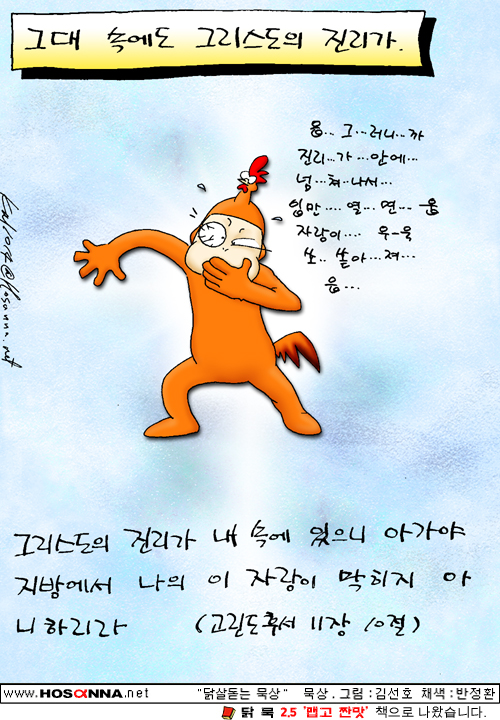 그대 속에도 그리스도의 진리가.
웁... 그...러니...까
진리...가 ...안에...
넘...쳐..나서...
입만.... 열... 연--- 웁
자랑이.... 우-욱
쏘.. 쏟아...져...
웁...
그리스도의 진리가 내 속에 있으니 아가야
지방에서 나의 이 자랑이 막히지 아
니하리라 (고린도후서 11장 10절)
www.HOSANNA.net "닭살돋는 묵상" 묵상.그림:김선호 채색:반정환
닭 묵 2.5 '맵고 짠맛' 책으로 나왔습니다.